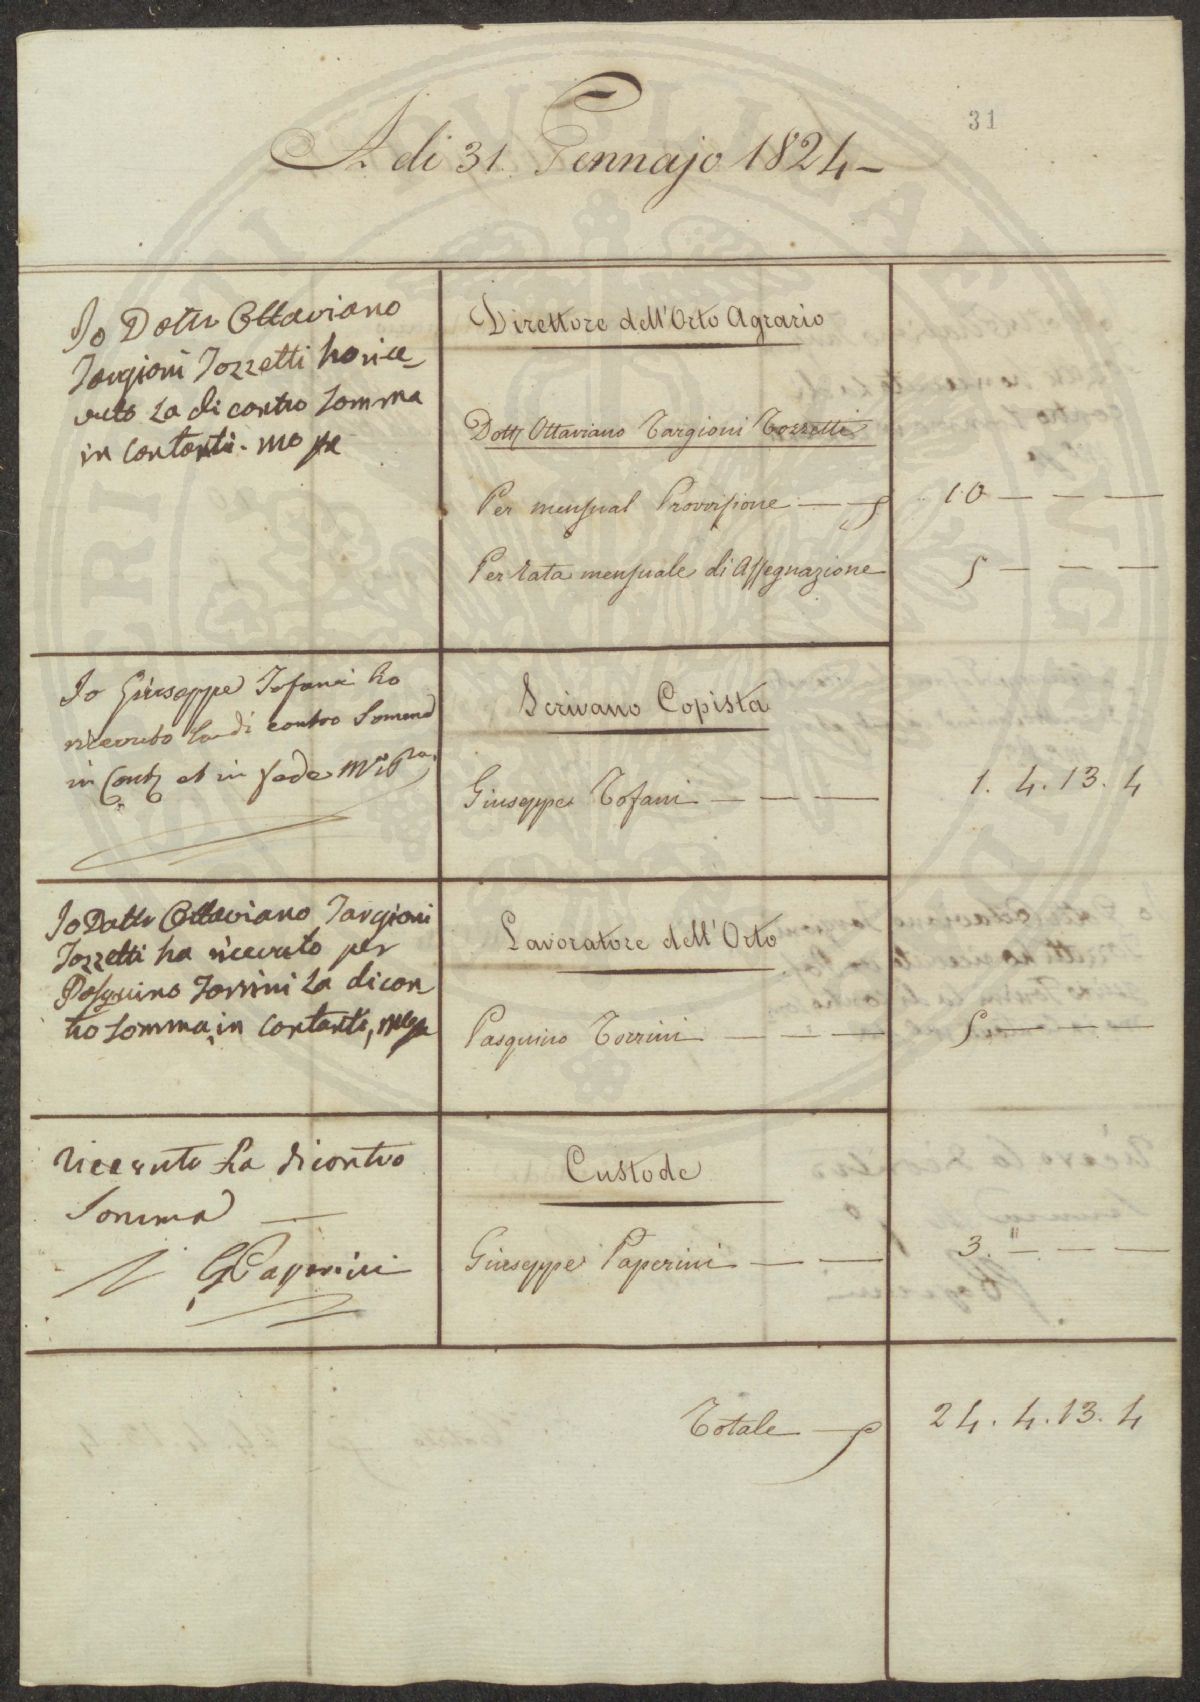 31
A di 31. Gennajo 1824 —
Io Dottr Ottaviano
Targioni Tozzetti ho rice-
vuto La di contro Somma
in Contanti. mo pa
Direttore dell'Orto Agrario
Dottr Ottaviano Targioni Tozzetti
Per mensual Provvisione — 10 — — —
Per rata mensuale di Assegnazione 5 — — —
Io Giuseppe Tofani ho
ricevuto la di contro Somma
in Conti et in fede
Scrivano Copista
Giuseppe Tofani — — — 1. 4. 13. 4
Io Dottr Ottaviano Targioni
Tozzetti ho ricevuto per
Pasquino Torrini La di con
tro Somma, in contanti,
Lavoratore dell'Orto
Pasquino Torrini — — — 5 — — —
Ricevuto La di contro
Somma —
G Paperini
Custode
Giuseppe Paperini — — 3. " — — —
Totale — 24. 4. 13. 4